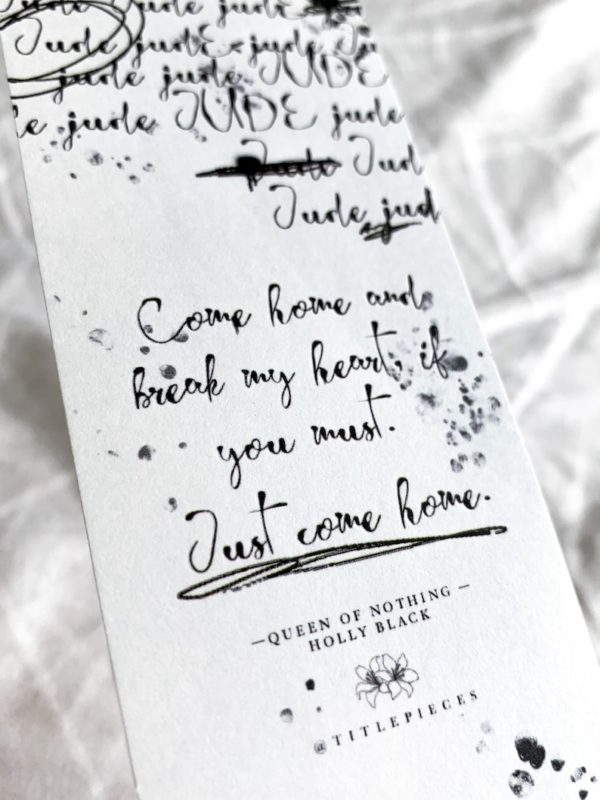 Jude Jude Jude Jude
Jude judE jude Ju
jude jude JUDE
e jude JUDE jude
Jude Jud
Jude jud
Come home and
break my heart, if
you must.
Just come home.
—QUEEN OF NOTHING —
HOLLY BLACK
@TITLEPIECES